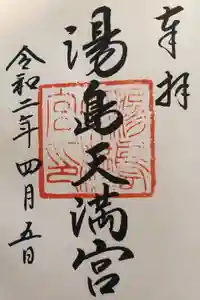 奉拝
湯島天満宮
令和二年四月五日